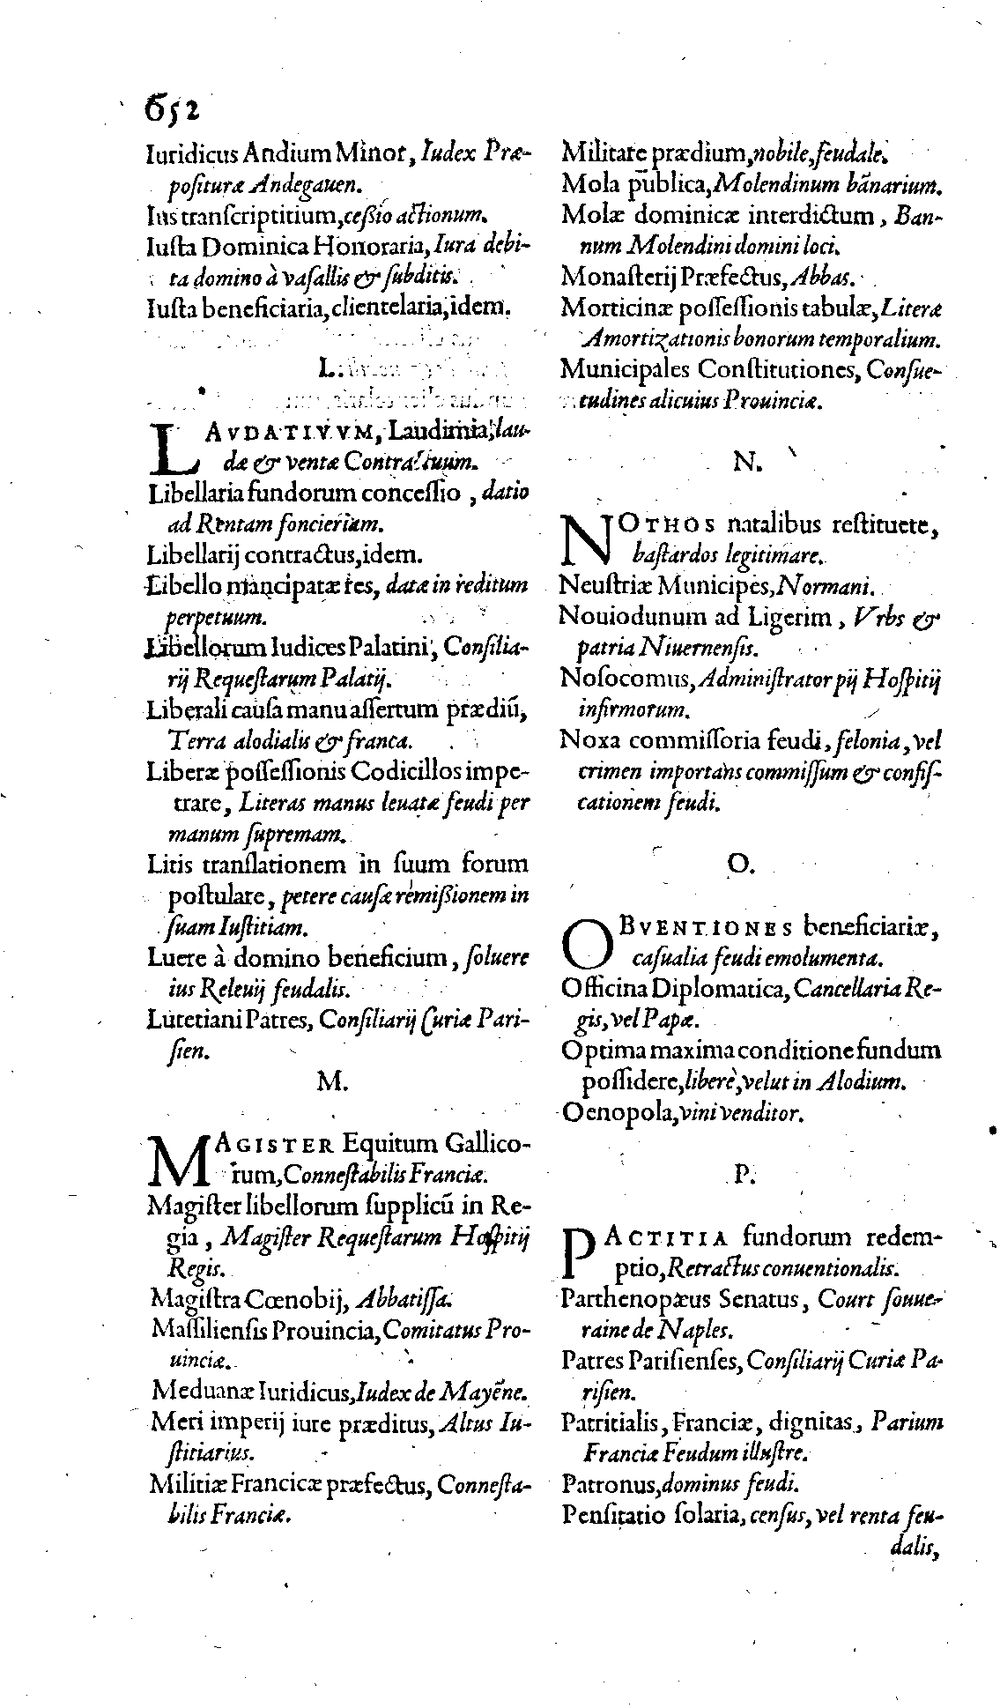 652
Iuridicus Andium Minor, Iudex Præ-
posituræ Andegauen.
Ius transcriptitium, ceßio actionum.
Iusta Dominica Honoraria, Iura debi-
ta domino à vasallis & subditis.
Iusta beneficiaria, clientelaria, idem.
L.
LAVDATIVVM, Laudimia, lau-
dæ & ventæ Contractuum.
Libellaria fundorum concessio, datio
ad Rentam foncieriam.
Libellarij contractus, idem.
Libello mancipatæ res, datæ in reditum
perpetuum.
Libellorum Iudices Palatini, Consilia-
rij Requestarum Palatij.
Liberali causa manu assertum prædiũ,
Terra alodialis & franca.
Liberæ possessionis Codicillos impe-
trare, Literas manus leuatæ feudi per
manum supremam.
Litis translationem in suum forum
postulare, petere causæ remißionem in
suam Iustitiam.
Luere à domino beneficium, soluere
ius Releuij feudalis.
Lutetiani Patres, Consiliarij Curiæ Pari-
sien.
M.
MAGISTER Equitum Gallico-
rum, Connestabilis Franciæ.
Magister libellorum supplicũ in Re-
gia, Magister Requestarum Hospitij
Regis.
Magistra Cœnobij, Abbatissa.
Massiliensis Prouincia, Comitatus Pro-
uinciæ.
Meduanæ Iuridicus, Iudex de Mayẽne.
Meri imperij iure præditus, Altus Iu-
stitiarius.
Militiæ Francicæ præfectus, Connesta-
bilis Franciæ.
Militare prædium, nobile, feudale.
Mola publica, Molendinum bãnarium.
Molæ dominicæ interdictum, Ban-
num Molendini domini loci.
Monasterij Præfectus, Abbas.
Morticinæ possessionis tabulæ, Literæ
Amortizationis bonorum temporalium.
Municipales Constitutiones, Consue-
tudines alicuius Prouinciæ.
N.
NOTHOS natalibus restituere,
bastardos legitimare.
Neustriæ Municipes, Normani.
Nouiodunum ad Ligerim, Vrbs &
patria Niuernensis.
Nosocomus, Administrator pij Hospitij
infirmorum.
Noxa commissoria feudi, felonia, vel
crimen importans commissum & confis-
cationem feudi.
O.
OBVENTIONES beneficiariæ,
casualia feudi emolumenta.
Officina Diplomatica, Cancellaria Re-
gis, vel Papæ.
Optima maxima conditione fundum
possidere, liberè, velut in Alodium.
Oenopola, vini venditor.
P.
PACTITIA fundorum redem-
ptio, Retractus conuentionalis.
Parthenopæus Senatus, Court souue-
raine de Naples.
Patres Parisienses, Consiliarij Curiæ Pa-
risien.
Patritialis, Franciæ, dignitas, Parium
Franciæ Feudum illustre.
Patronus, dominus feudi.
Pensitatio solaria, census, vel renta feu-
dalis,